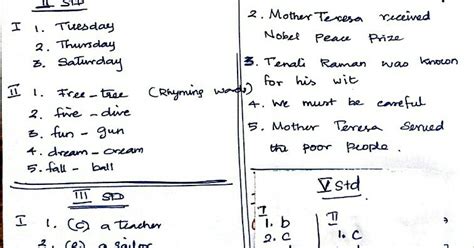 II STD
I 1. Tuesday
2. Thursday
3. Saturday
II 1. Free - tree (Rhyming words)
2. five - dive
3. fun - gun
4. dream - cream
5. fall - ball
III STD
I 1. (c) a teacher
2. (e) a sailor
2. Mother Teresa received
Nobel Peace Prize
3. Tenali Raman was known
for his wit
4. We must be careful
5. Mother Teresa served
the poor people.
V Std
I
1. b
2. c
II
1. c